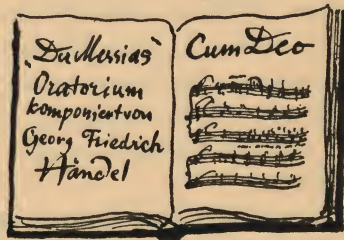 „Der Messias“
Oratorium
komponiert von
Georg Friedrich
Händel
Cum Deo